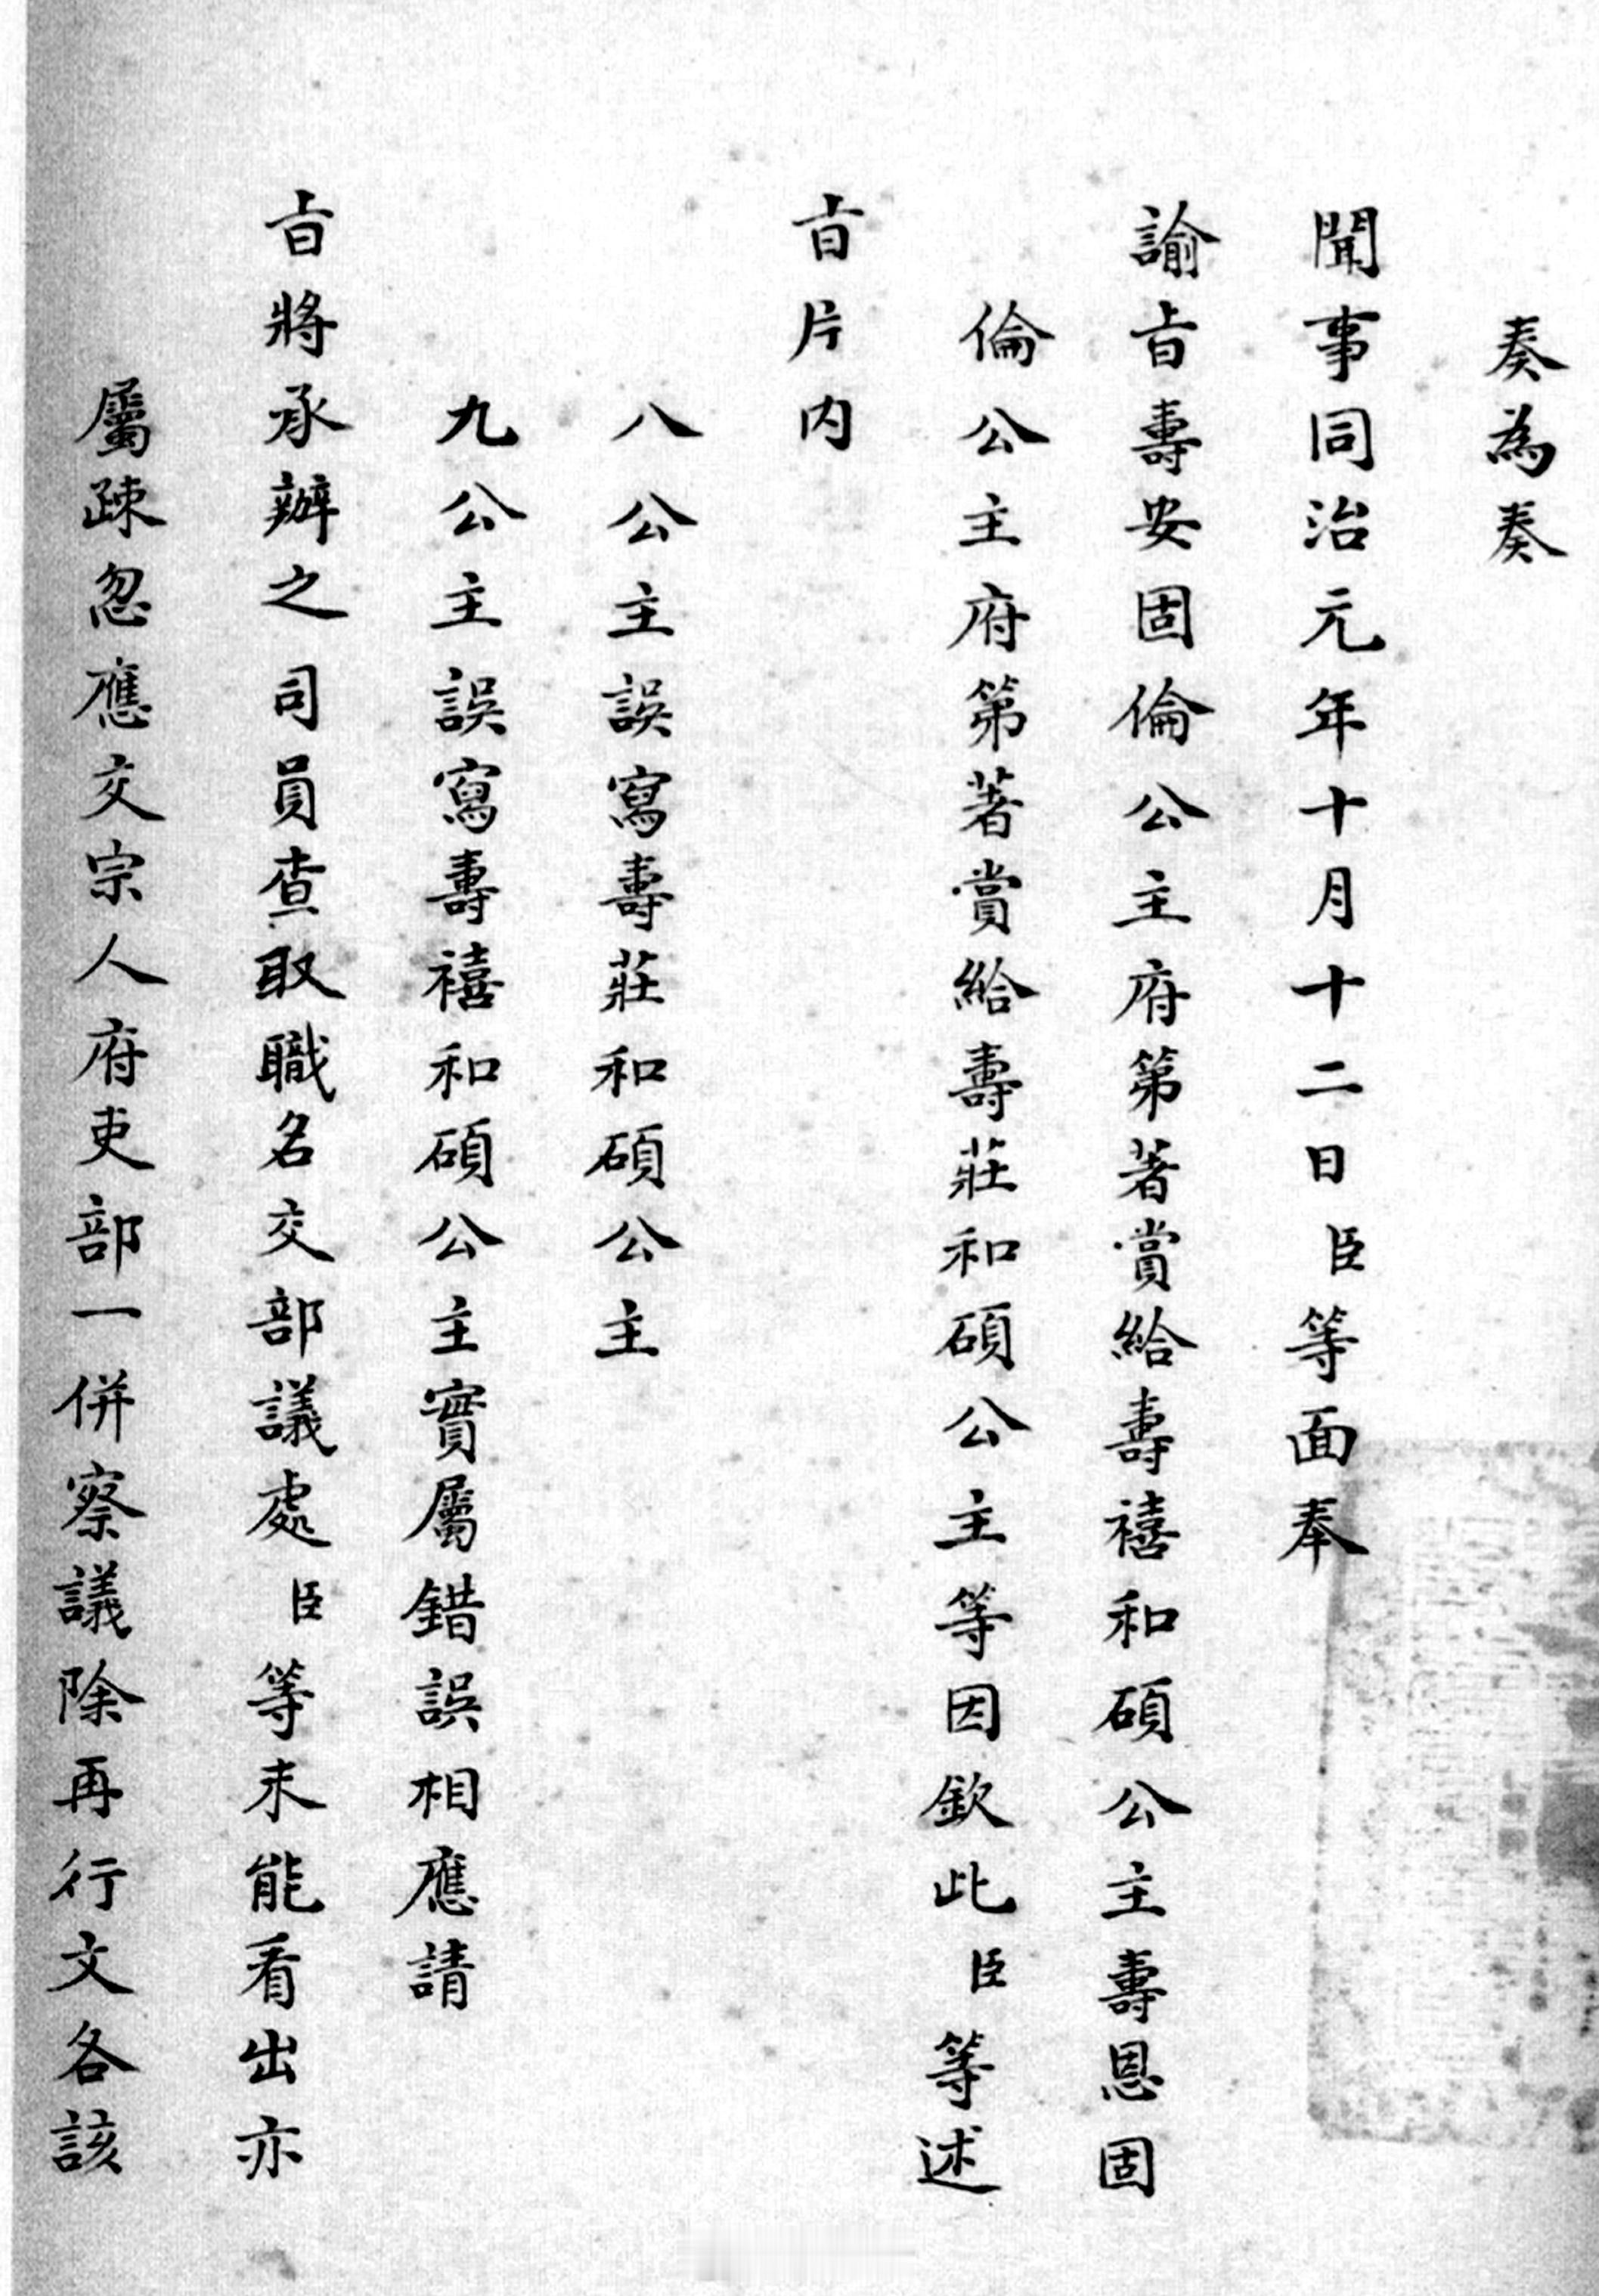 奏為奏
聞事同治元年十月十二日臣等面奉
諭旨壽安固倫公主府第著賞給壽禧和碩公主壽恩固
倫公主府第著賞給壽莊和碩公主等因欽此臣等述
旨片内
八公主誤寫壽莊和碩公主
九公主誤寫壽禧和碩公主實屬錯誤相應請
旨將承辦之司員查取職名交部議處臣等未能看出亦
屬疎忽應交宗人府吏部一併察議除再行文各該